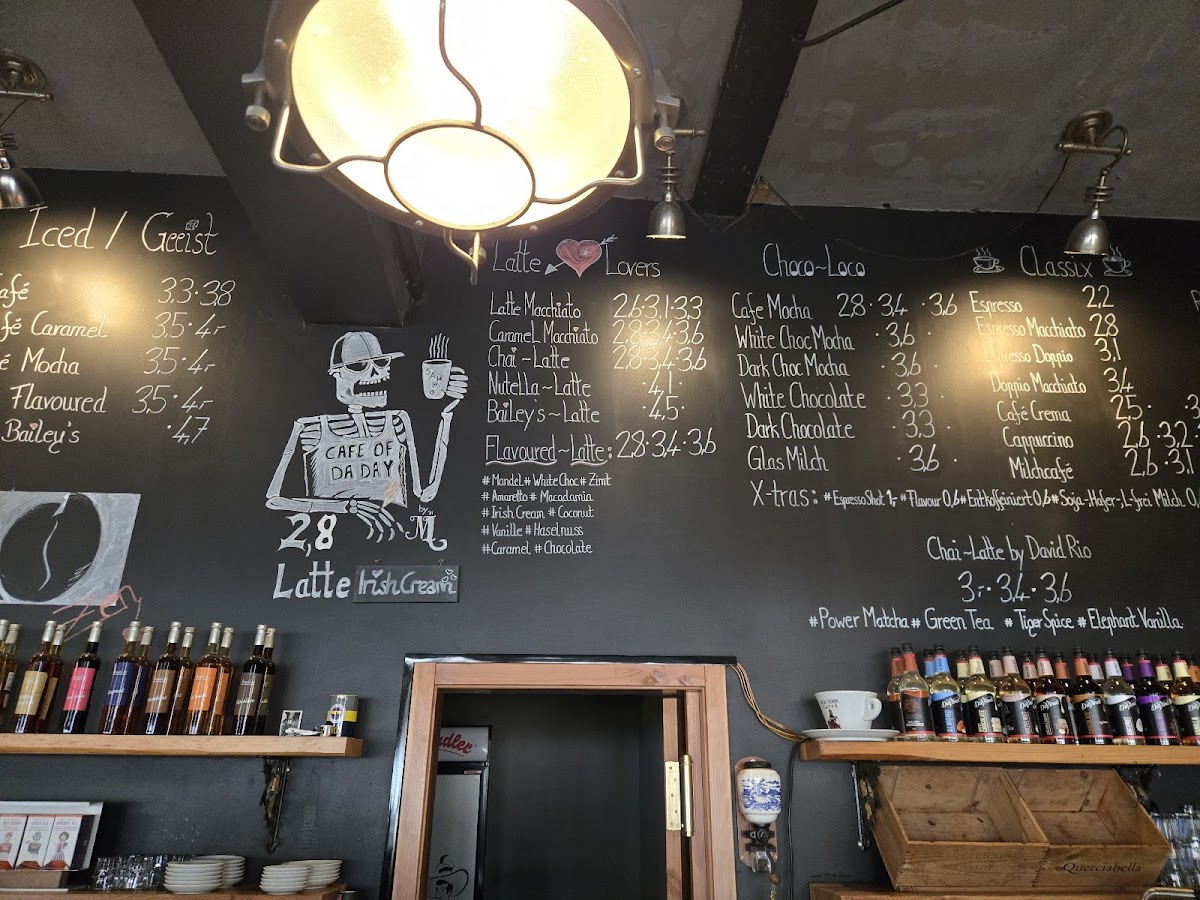 Iced / Geeist
afé 3,3·3,8
fé Caramel 3,5·4,-
é Mocha 3,5·4,-
Flavoured 3,5·4,-
Bailey's ·4,7
CAFE OF
DA DAY
by
2,8
Latte Irish Cream
Latte Lovers
Latte Macchiato 2,6·3,1·3,3
Caramel Macchiato 2,8·3,4·3,6
Chai~Latte 2,8·3,4·3,6
Nutella~Latte ·4,1·
Bailey's~Latte ·4,5·
Flavoured~Latte: 2,8·3,4·3,6
# Mandel # White Choc # Zimt
# Amaretto # Macadamia
# Irish Cream # Coconut
# Vanille # Haselnuss
# Caramel # Chocolate
Choco~Loco
Cafe Mocha 2,8·3,4·3,6
White Choc Mocha ·3,6·
Dark Choc Mocha ·3,6·
White Chocolate ·3,3·
Dark Chocolate ·3,3·
Glas Milch ·3,6·
Classix
Espresso 2,2
Espresso Macchiato 2,8
Espresso Doppio 3,1
Doppio Macchiato 3,4
Café Crema 2,5·
Cappuccino 2,6·3,2
Milchcafé 2,6·3,1
X-tras: # Espresso Shot 1,- # Flavour 0,6 # Entkoffeiniert 0,6 # Soja-,Hafer-,L-frei Milch
Chai~Latte by David Rio
3,-·3,4·3,6
# Power Matcha # Green Tea # Tiger Spice # Elephant Vanilla
DaVinci
Querciabella